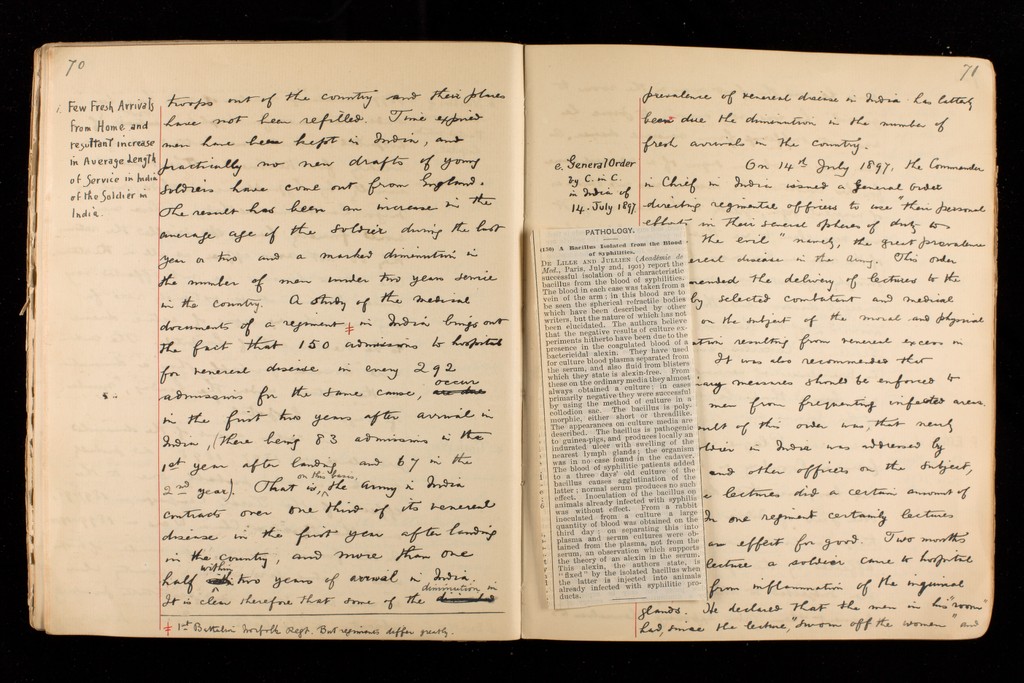 70
Few Fresh Arrivals
From Home and
resultant increase
in Average Length
of Service in India
of the Soldier in
India.
troops out of the country and their places
have not been refilled. Time expired
men have been kept in India, and
practically no new drafts of young
soldiers have come out from England.
The result has been an increase in the
average age of the soldier during the last
year or two and a marked diminution in
the number of men under two years service
in the country. A study of the medical
documents of a regiment ‡ in India brings out
the fact that 150 admissions to hospital
for venereal disease in every 292
occur
admissions for the same cause, are due
in the first two years after arrival in
India, (there being 83 admissions in the
1st year after landing and 67 in the
on this basis,
2nd year). That is, the Army in India
contracts over one third of its venereal
disease in the first year after landing
in the country, and more than one
within
half two years of arrival in India.
diminution in
It is clear therefore that some of the
‡ 1st Battalion Norfolk Regt. But regiments differ greatly.
71
prevalence of venereal disease in India has latterly
been due the diminution in the number of
fresh arrivals in the country.
e. General Order
by C. in C.
in India of
14. July 1897
On 14th July 1897, the Commander
in Chief in India issued a general order
directing regimental officers to use their personal
efforts in their several spheres of duty to
the evil" namely, the great prevalence
ereal disease in the Army. This order
mended the delivery of lectures to the
by selected combatant and medical
on the subject of the moral and physical
ation resulting from venereal excess in
It was also recommended that
ary measures should be enforced to
men from frequenting infected areas.
sult of this order was, that nearly
oldier in India was addressed by
and other officers on the subject,
lectures did a certain amount of
In one regiment certainly lectures
an effect for good. Two months
lecture a soldier came to hospital
from inflammation of the inguinal
glands. He declared that the men in his "room"
had, since the lecture, "sworn off the women" and
PATHOLOGY.
(126) A Bacillus Isolated from the Blood
of Syphilitics.
DE LILLE AND JULLIEN (Académie de
Méd., Paris, July 2nd, 1901) report the
successful isolation of a characteristic
bacillus from the blood of syphilitics.
The blood in each case was taken from a
vein of the arm; in this blood are to
be seen the spherical refractile bodies
which have been described by other
writers, but the nature of which has not
been elucidated. The authors believe
that the negative results of culture ex-
periments hitherto have been due to the
presence in the coagulated blood of a
bactericidal alexin. They have used
for culture blood plasma separated from
the serum, and also fluid from blisters
which they state is alexin-free. From
these on the ordinary media they almost
always obtained a culture; in cases
primarily negative they were successful
by using the method of culture in a
collodion sac. The bacillus is poly-
morphic, either short or threadlike.
The appearances on culture media are
described. The bacillus is pathogenic
to guinea-pigs, and produces locally an
indurated ulcer with swelling of the
nearest lymph glands; the organism
was in no case found in the cadaver.
The blood of syphilitic patients added
to a three days' old culture of the
bacillus causes agglutination of the
latter; normal serum produces no such
effect. Inoculation of the bacillus on
animals already infected with syphilis
was without effect. From a rabbit
inoculated from a culture a large
quantity of blood was obtained on the
third day; on separating this into
plasma and serum cultures were ob-
tained from the plasma, not from the
serum, an observation which supports
the theory of an alexin in the serum.
This alexin, the authors state, is
"fixed" by the isolated bacillus when
the latter is injected into animals
already infected with syphilitic pro-
ducts.